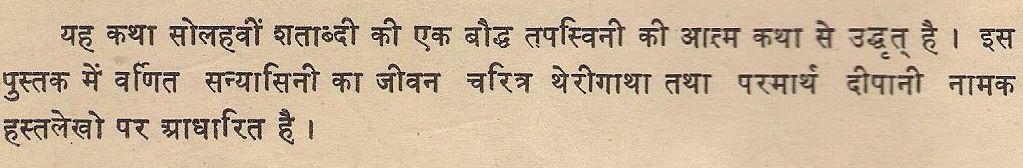 यह कथा सोलहवीं शताब्दी की एक बौद्ध तपस्विनी की आत्म कथा से उद्धृत् है । इस
पुस्तक में वर्णित सन्यासिनी का जीवन चरित्र थेरीगाथा तथा परमार्थ दीपानी नामक
हस्तलेखो पर आधारित है ।